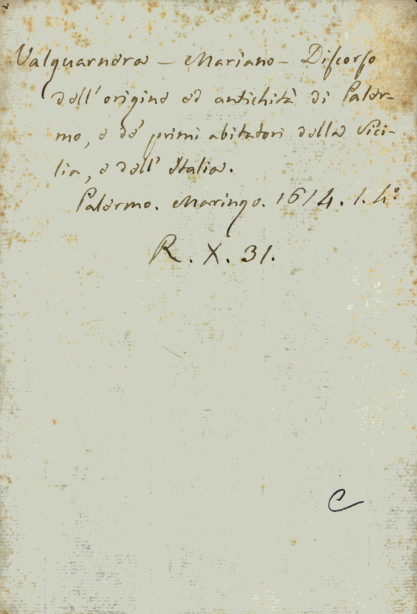 Valguarnera - Mariano - Discorso
dell'origine ed antichità di Paler-
mo, e de' primi abitatori della Sici-
lia, e dell' Italia.
Palermo. Maringo. 1614. 1. 4.º
R. X. 31.
C